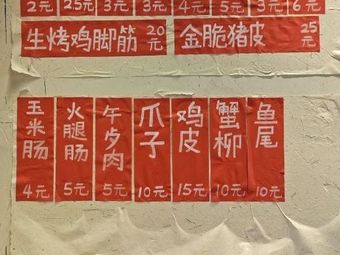 2元 25元 3元 3元 4元 5元 3元 6元
生烤鸡脚筋 20元
金脆猪皮 25元
玉米肠 4元
火腿肠 5元
午歺肉 5元
爪子 10元
鸡皮 15元
蟹柳 10元
鱼尾 10元